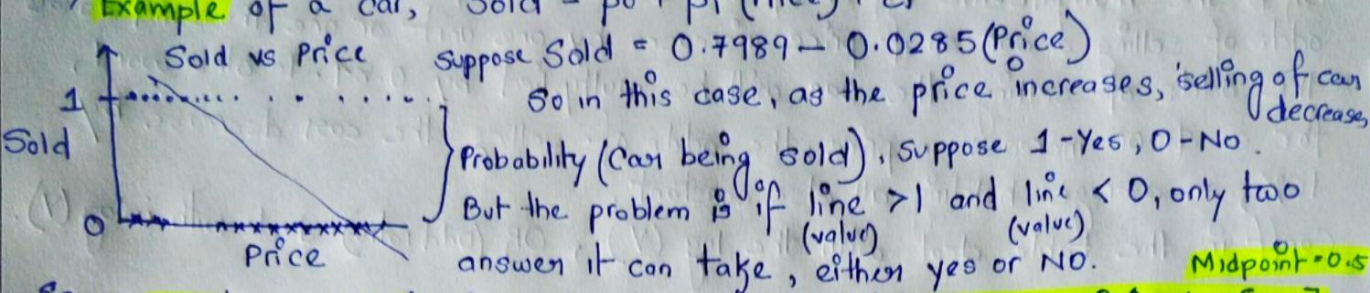 Example of a car, Sold = β0 + β1 (Price) + ε
Sold vs Price
Suppose Sold = 0.7989 - 0.0285 (Price)
1
So in this case, as the price increases, selling of car decrease,
Sold
Probability (Car being sold), suppose 1-Yes, 0-No.
But the problem is if line >1 and line < 0, only two
(value) (value)
0
Price
answer it can take, either yes or No.
Midpoint = 0.5